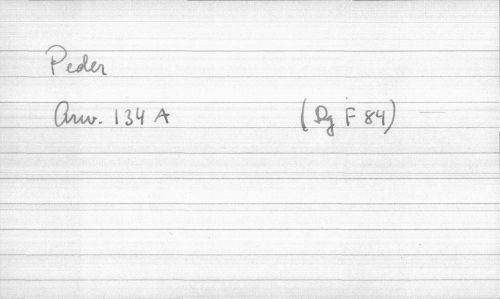 Peder
Arw. 134 A (Dg F 84)